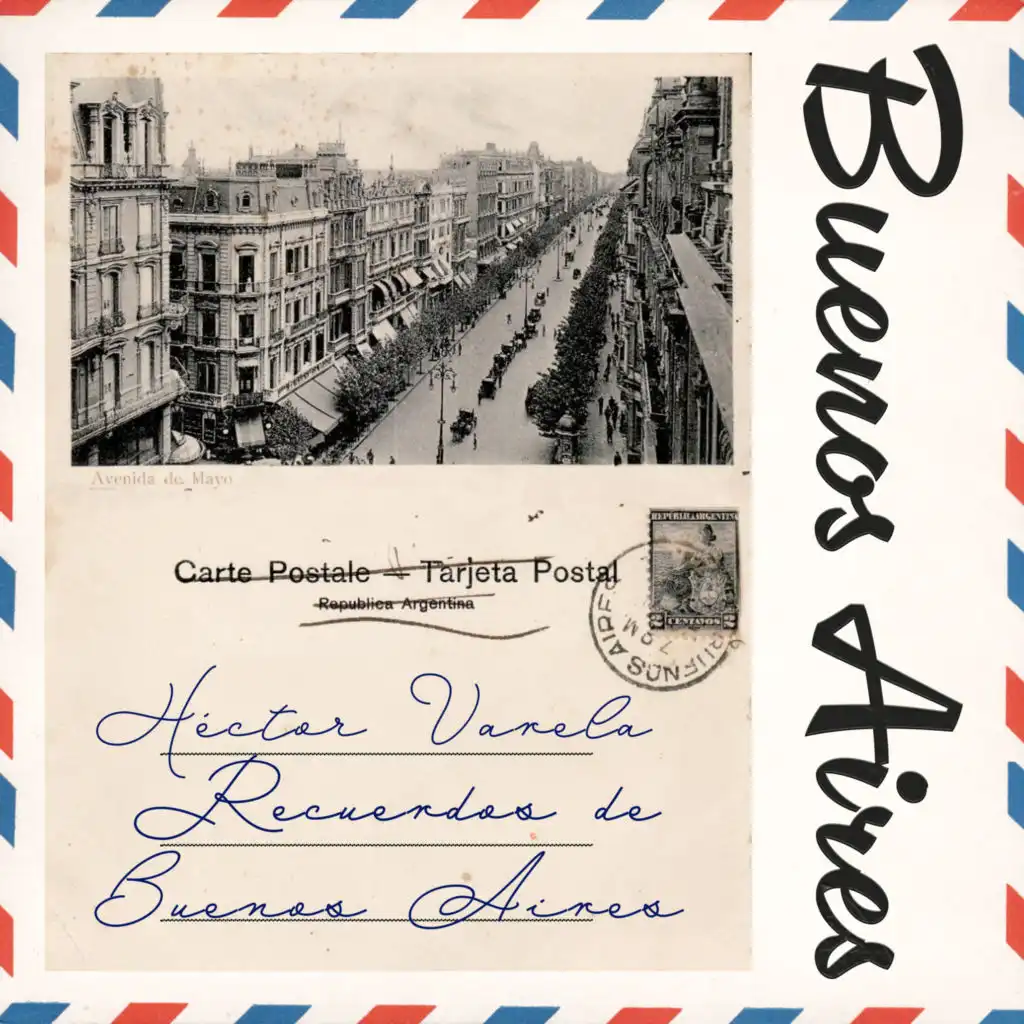 Avenida de Mayo
Carte Postale — Tarjeta Postal
Republica Argentina
REPUBLICA ARGENTINA
2 CENTAVOS 2
BUENOS AIRES
7 PM
Héctor Varela
Recuerdos de
Buenos Aires
Buenos Aires